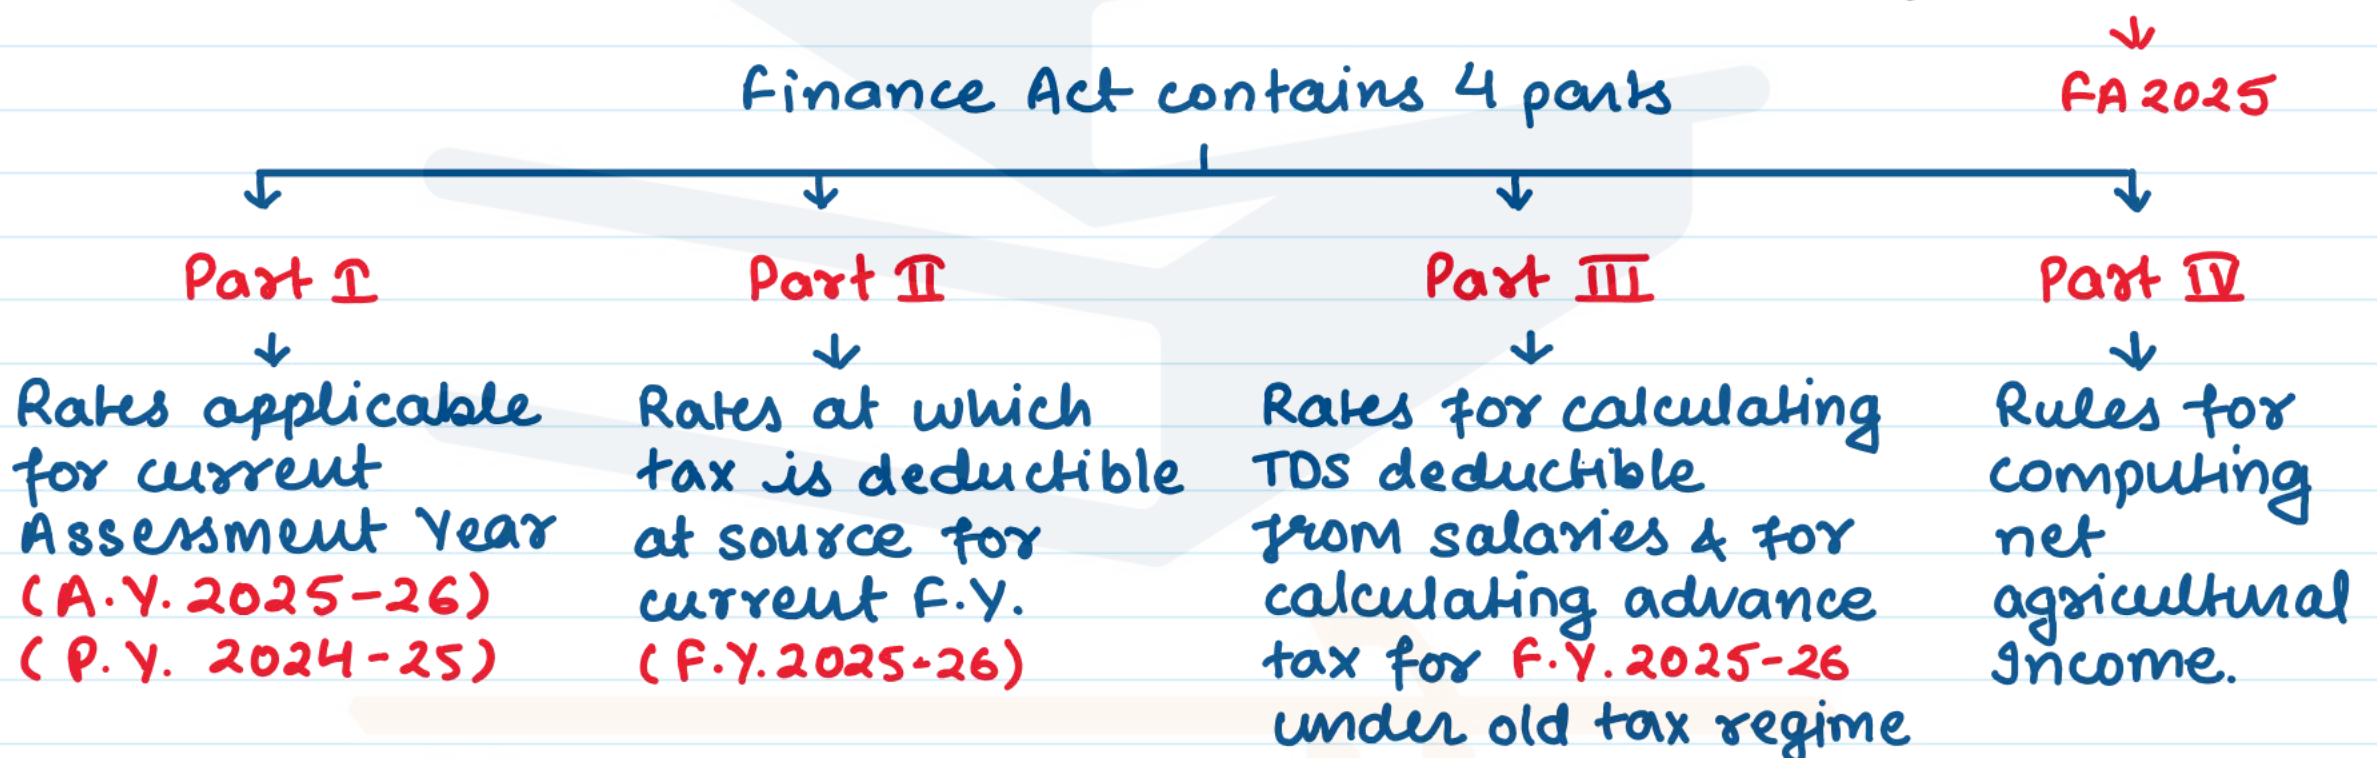 Finance Act contains 4 parts
FA 2025
Part I
Rates applicable
for current
Assessment Year
(A.Y. 2025-26)
(P.Y. 2024-25)
Part II
Rates at which
tax is deductible
at source for
current F.Y.
(F.Y. 2025-26)
Part III
Rates for calculating
TDS deductible
from salaries & for
calculating advance
tax for F.Y. 2025-26
under old tax regime
Part IV
Rules for
computing
net
agricultural
Income.